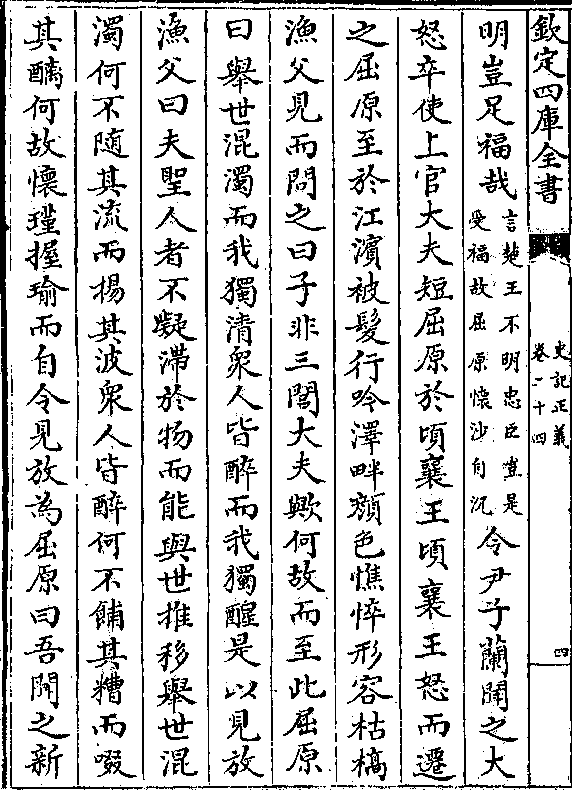 欽定四庫全書
史記正義
卷八十四
四
明豈足福哉
言楚王不明忠臣豈是
受福故屈原懷沙自沉
令尹子蘭聞之大
怒卒使上官大夫短屈原於頃襄王頃襄王怒而遷
之屈原至於江濱被髮行吟澤畔顔色憔悴形容枯槁
漁父見而問之曰子非三閭大夫歟何故而至此屈原
曰舉世混濁而我獨清衆人皆醉而我獨醒是以見放
漁父曰夫聖人者不凝滯於物而能與世推移舉世混
濁何不隨其流而揚其波衆人皆醉何不餔其糟而啜
其醨何故懷瑾握瑜而自令見放為屈原曰吾聞之新